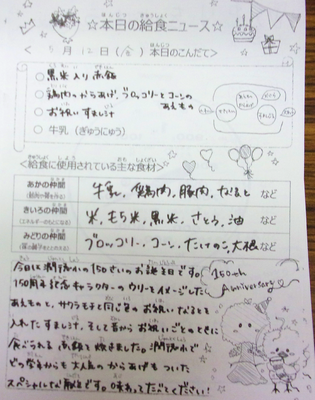 ☆本日の給食ニュース☆
＜5月12日（金）本日のこんだて＞
○黒米入り赤飯
○鶏肉のからあげ、ブロッコリーとコーンのあえもの
○お祝いすまし汁
○牛乳（ぎゅうにゅう）
＜給食に使用されている主な食材＞
あかの仲間
牛乳、鶏肉、豚肉、なると など
きいろの仲間
（エネルギーのもとになる）
米、もち米、黒米、さとう、油 など
みどりの仲間
（体の調子をととのえる）
ブロッコリー、コーン、たけのこ、大根 など
150th Anniversary
150周年記念キャラクターのウリーをイメージした
あえものと、サクラモチと同じ色のお祝いなるとを
入れたすまし汁、そして昔からお祝いごとのときに
食べられる赤飯を炊きました。
どの学年からも大人気のからあげもついた
スペシャルな献立です。味わってたべてください！